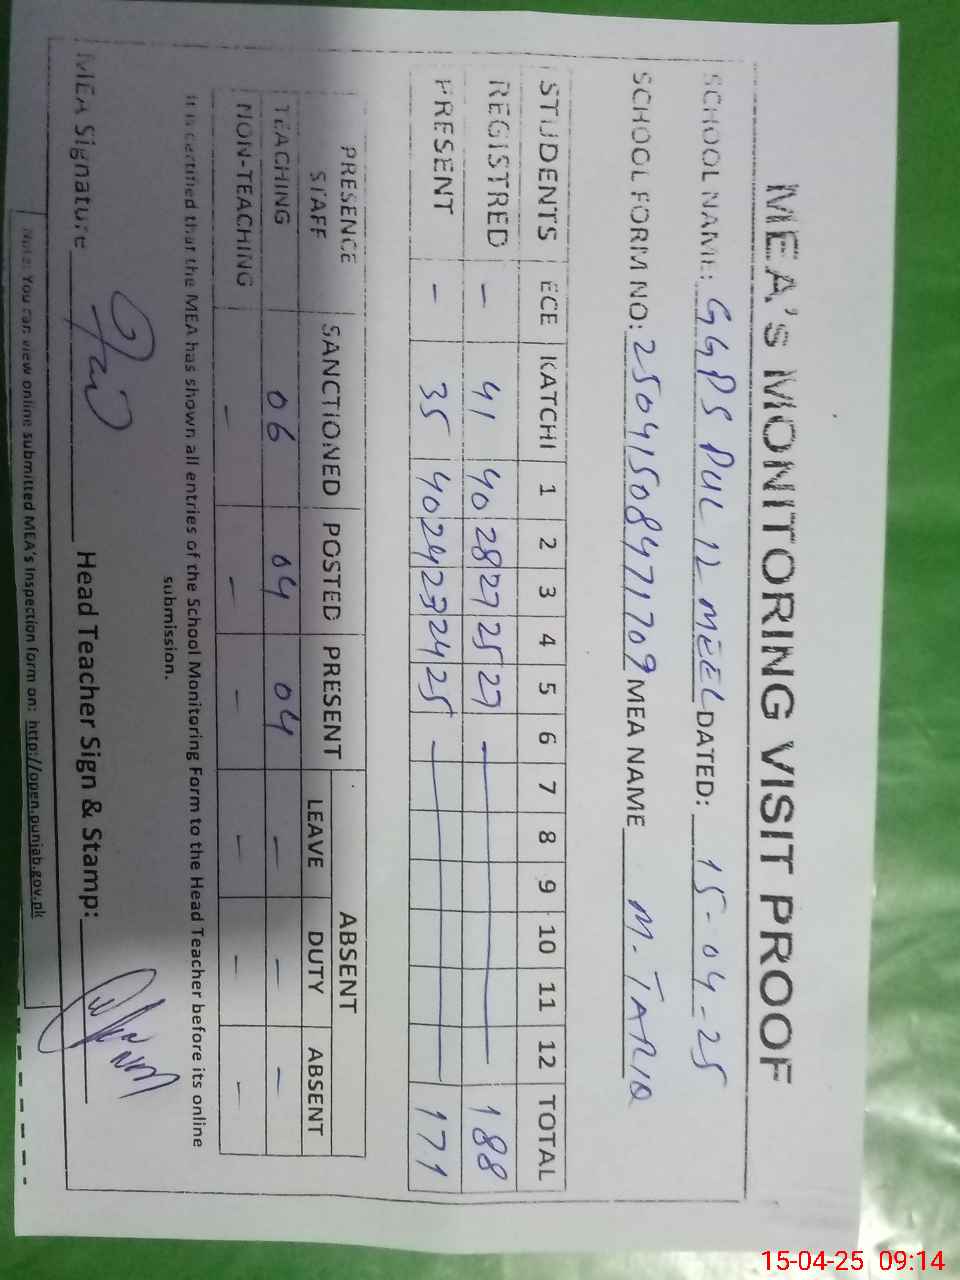 MEA'S MONITORING VISIT PROOF
SCHOOL NAME: GGPS PUL 12 MEEL DATED: 15-04-25
SCHOOL FORM NO: 25041508471709 MEA NAME M. TARIQ
STUDENTS ECE KATCHI 1 2 3 4 5 6 7 8 9 10 11 12 TOTAL
REGISTRED - 41 40 28 27 25 27 188
PRESENT - 35 40 24 23 24 25 171
PRESENCE SANCTIONED POSTED PRESENT ABSENT
STAFF LEAVE DUTY ABSENT
TEACHING 06 04 04 - - -
NON-TEACHING - - - - - -
It is certified that the MEA has shown all entries of the School Monitoring Form to the Head Teacher before its online
submission.
MEA Signature Head Teacher Sign & Stamp:
Note: You can view online submitted MEA's Inspection form on: http://open.punjab.gov.pk
15-04-25 09:14